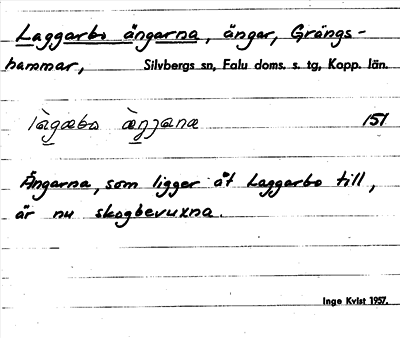 Laggarbo ängarna, ängar, Grängs-
hammar, Silvbergs sn, Falu doms. s. tg, Kopp. län.
151
Ängarna, som ligger åt Laggarbo till,
är nu skogbevuxna.
Inge Kvist 1957.